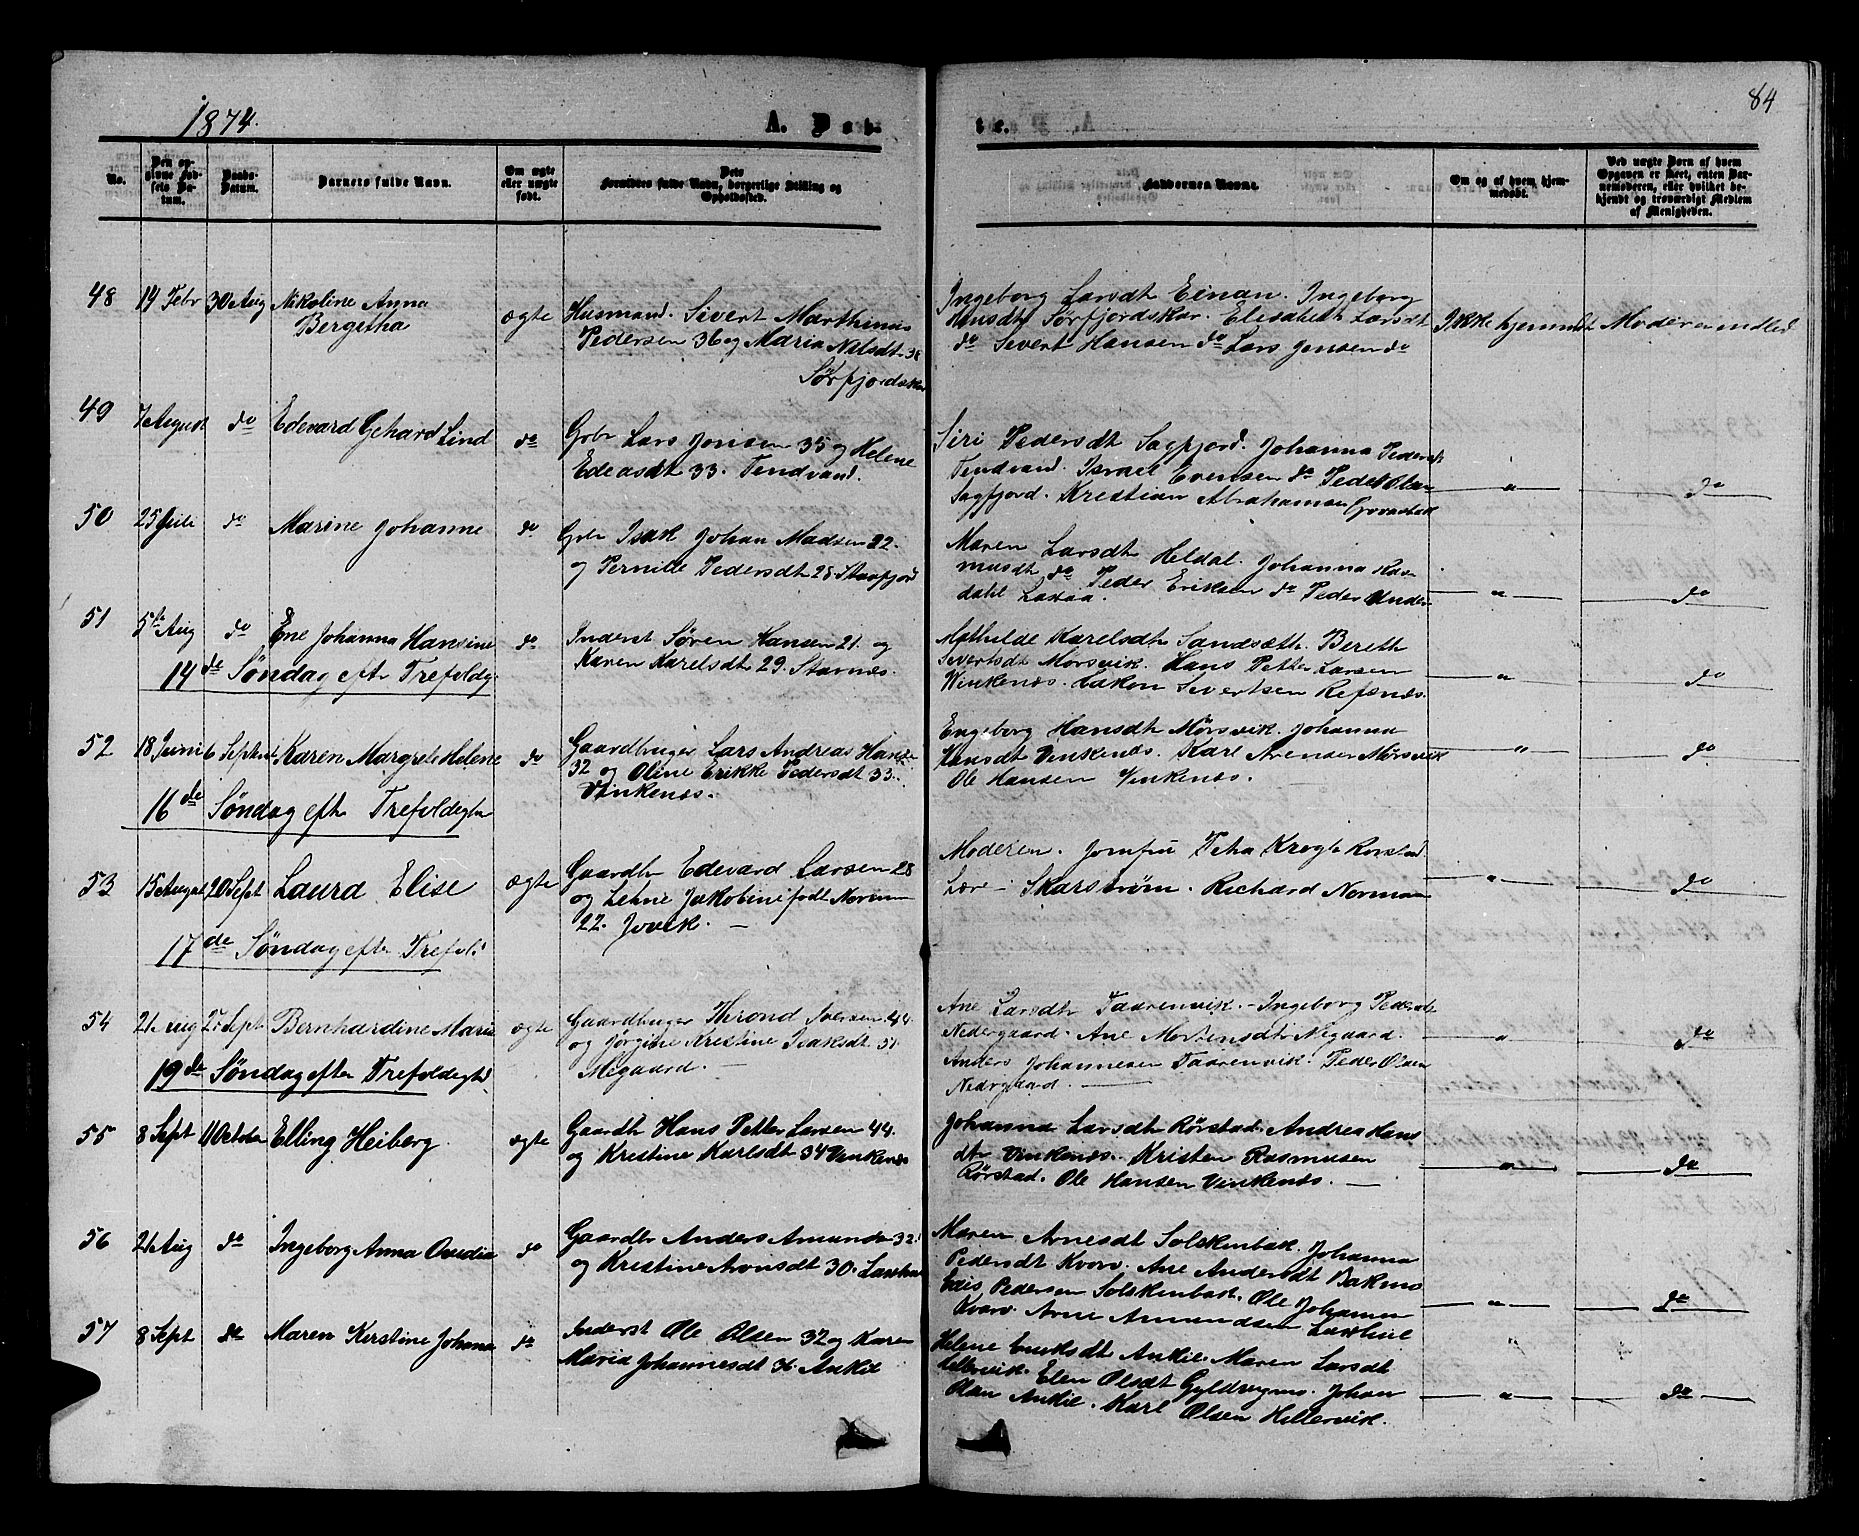 1874.
A. Døb-
te.
84
No.
Den opgivne Fødsels Datum.
Daabs-Datum.
Barnets fulde Navn.
Om ægte eller uægte født.
Dets Forældres fulde Navn, borgerlige Stilling og Opholdssted.
Faddernes Navne.
Om og af hvem hjemmedøbt.
Ved uægte Børn af hvem Opgaven er skeet, enten Barnemoderen, eller hvilket bekjendt og troværdigt Medlem af Menigheden.
48 14 Febr 30 Aug Nikoline Anna
Bergetha
ægte
Husmand. Sivert Marthinus
Pedersen 36 og Maria Nilsdt 38
Sørfjordskar
Ingeborg Larsdt Einan. Ingeborg
Hansdt Sørfjordskar. Elisabeth Larsdt
do Sivert Hansen do Lars Jensen do
Ikke hjemmdt Moderen
49 7 August do Edevard Gehard Lind do
Gbr Lars Jonsen 35 og Helene
Edeasdt 33. Tendvand.
Siri Pedersdt Sagfjord. Johanna Pedersdt
Tendvand. Israel Evensen do Peder Olsen
Sagfjord. Kristian Abrahamsen
" do
50 25 Juli do Marine Johanne do
Gbr Isak Johan Madsen 22.
og Pernille Pedersdt 28
Maren Larsdt Heldal. Johanna Ras-
musdt do Peder Eriksen do Peder Ander-
" do
51 5te Aug do Ene Johanna Hansine do
Inderst Søren Hansen 21. og
Karen Karelsdt 29. Stavnes.
Mathilde Karelsdt Sandsæth. Bereth
Sivertsdt Mørsvik. Hans Petter Larsen
Vinkenæs. Hakon Sivertsen Refsnæs.
" do
14de Søndag eft Trefoldg.
52 18 Juni 6 Septbr Karen Margrete Helene do
Gaardbruger Lars Andreas Hansen
32 og Oline Erikke Pedersdt 33.
Vinkenæs.
Engeborg Hansdt Mørsvik. Johanna
Hansdt Vinkenæs. Karl Arensen Mørsvik
Ole Hansen Vinkenæs.
" do
16de Søndag eftr Trefoldigh
53 15 August 20 Sept Laura Elise ægte
Gaardbr Edevard Larsen 28
og Lehne Jakobine født Norman
22. Jovik. —
Moderen. Jomfru Petra Krogh Rørstad
Lær — Skarstrøm. Richard Norman
" do
17de Søndag eftr Trefol:
54 21 Aug 27 Sept Bernhardine Marie ægte
Gaardbruger Thrond Iversen 44.
og Jørgine Kristine Isaksdt 31.
Megaard. —
Ane Larsdt Taarenvik. Ingeborg Pedersdt
Nedergaard. Ane Mortensdt Megaard.
Anders Johannesen Taarenvik. Peder Olsen
Nedrgaard. —
" do
19de Søndag efter Trefoldigh
55 8 Sept 11 October Elling Heiberg. ægte
Gaardb Hans Petter Larsen 44.
og Kristine Karlsdt 34 Vinkenæs
Johanna Larsdt Rørstad. Andrea Hans
dtr Vinkenæs. Kristen Rasmusen
Rørstad. Ole Hansen Vinkenæs. —
" do
56 21 Aug do Ingeborg Anna Ovedia do
Gaardbr Anders Amundsen 32
og Kristine Arnsdt 30.
Maren Arnesdt Solskenbak. Johanna
Pedersdt Kvarv. Ane Andersdt Baknes
Edis Pedersen Solskenbak. Ole Johansen
Kvarv. Arne Amundsen Laxhul
" do
57 8 Sept do Maren Kerstine Johana do
Inderst Ole Olsen 32 og Karen
Maria Johannesdt 36 Ankil
Helene Eriksdt Ankil. Maren Larsdt
Hellervik. Elen Olsdt Gyldvagnes. Johan
Olsen Ankil. Karl Olsen Hellervik.
" do